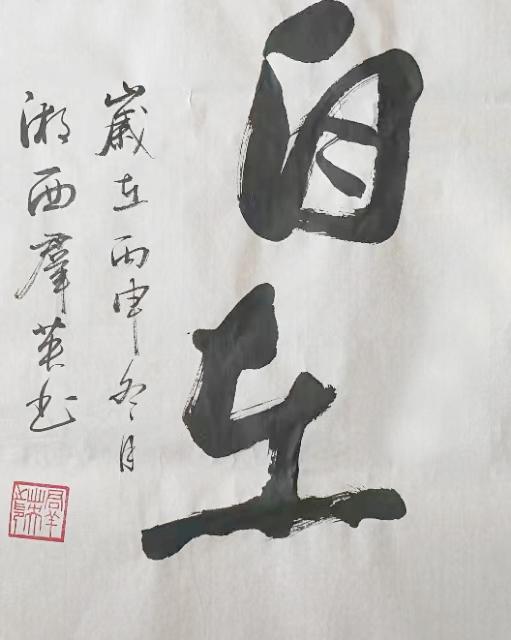 自在
歲在丙申冬月
湘西羣英书